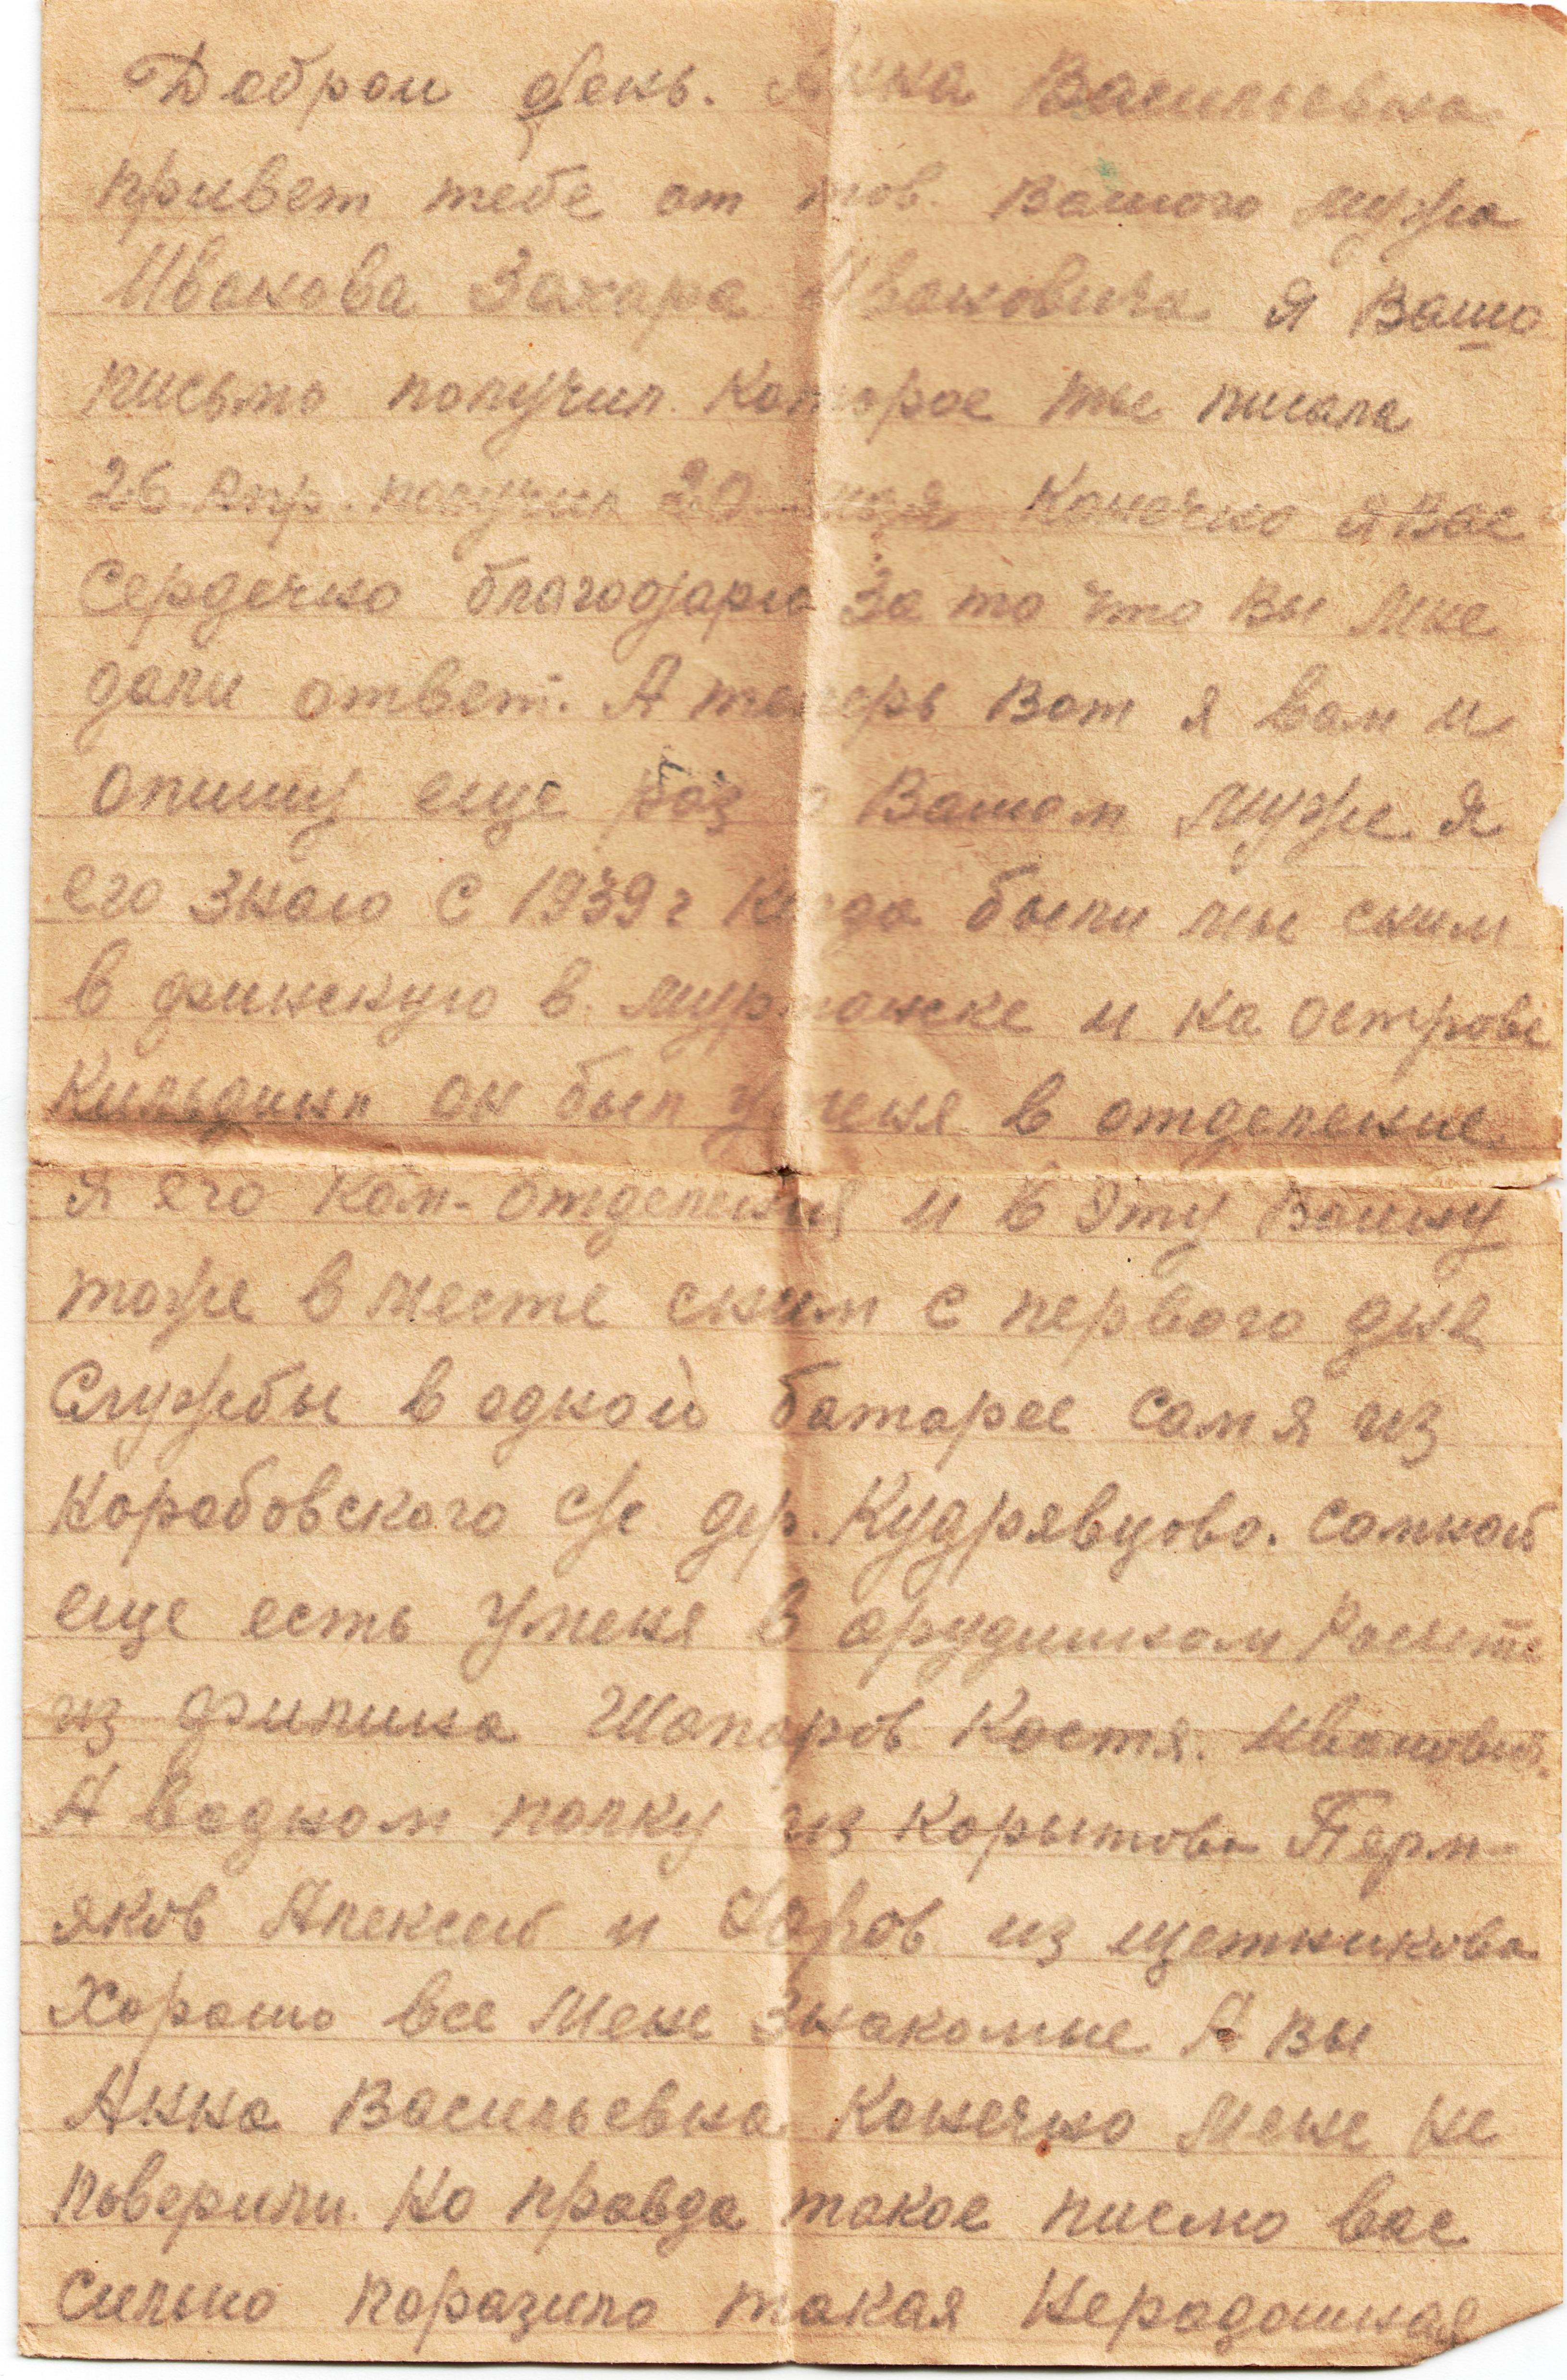 Доброи день. Анна Васильевна
привет тебе от тов. Вашого мужа
Иванова Захара Ивановича я Вашо
письмо получил. Которое ты писала
26 Апр. получил 20 мая Конечно я Вас
Сердечно благодарю За то что Вы мне
дали ответ. А теперь Вот я вам и
опишу еще раз о Вашом муже Я
его знаю С 1939 г Когда были мы сним
в финскую в. мурманске и на острове
Кильдин он был у меня в отделение
я его ком-отделения и в Эту Войну
тоже в месте сним с первого дня
Службы в одной батарее сам я из
Коробовского с/с. дер. Кудрявцово. Сомной
еще есть Уменя в орудишном Росчете
из филина Шапоров Костя. Иванович.
А водном полку из Корытова Перм-
яков Алексей и из щетникова
Хорошо все Мене Знакомые А Вы
Анна Васильевна Конечно Мене не
Поверили. Но правда такое писмо вас
Сильно поразило такая Нерадошная